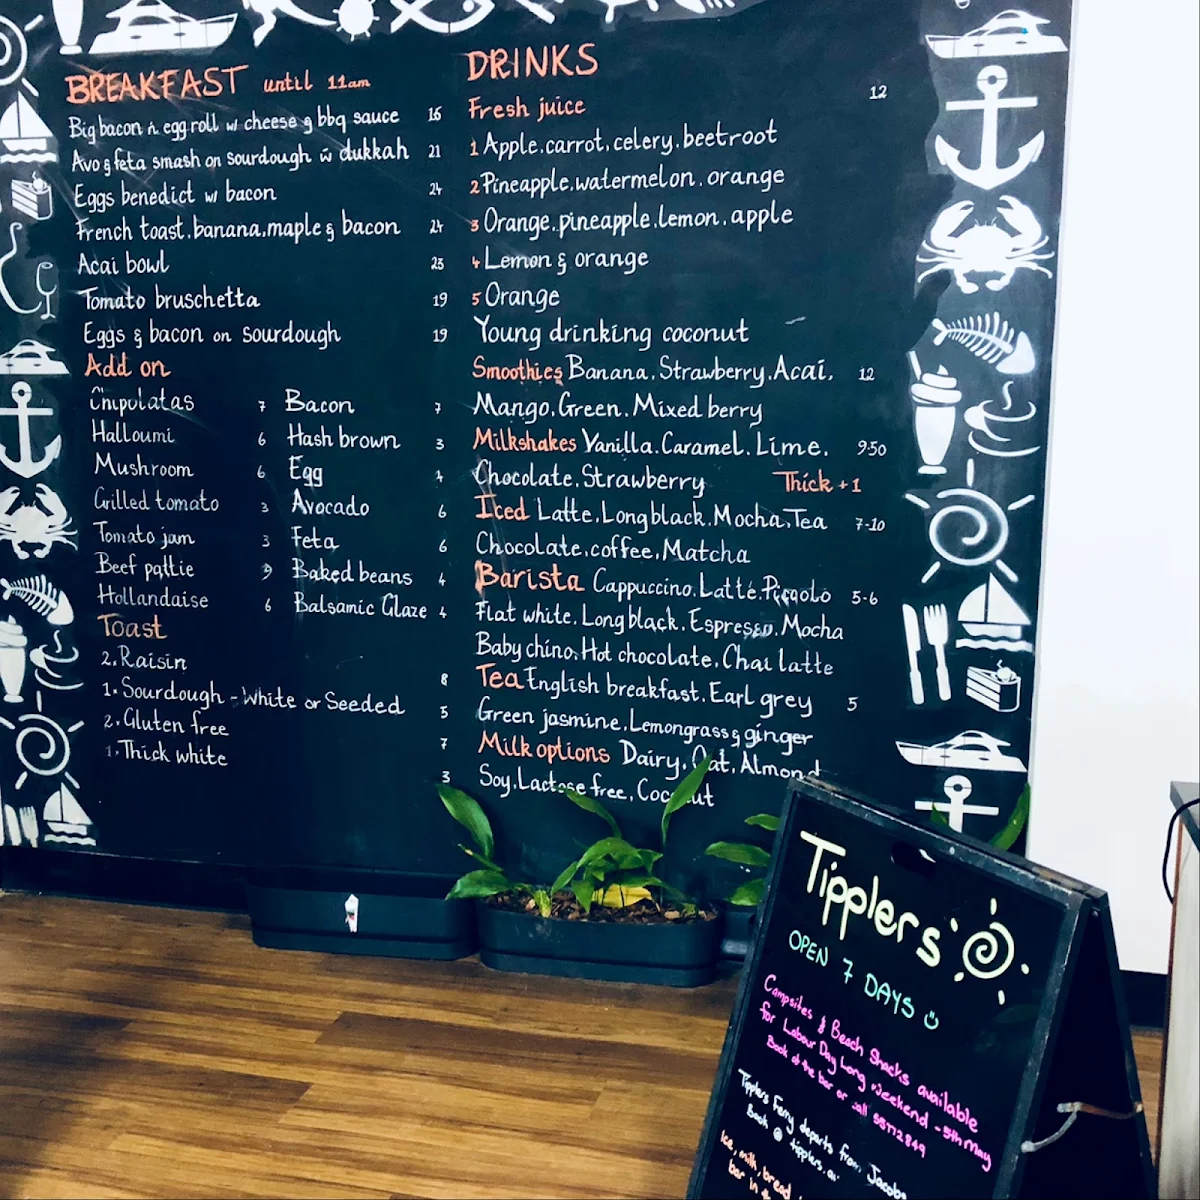 BREAKFAST until 11am
Big bacon n egg roll w/ cheese & bbq sauce 16
Avo & feta smash on sourdough w dukkah 21
Eggs benedict w/ bacon 24
French toast, banana, maple & bacon 24
Acai bowl 23
Tomato bruschetta 19
Eggs & bacon on sourdough 19
Add on
Chipolatas 7 Bacon 7
Halloumi 6 Hash brown 3
Mushroom 6 Egg
Grilled tomato 3 Avocado 6
Tomato jam 3 Feta 6
Beef pattie 9 Baked beans 4
Hollandaise 6 Balsamic Glaze 4
Toast
2. Raisin 8
1. Sourdough - White or Seeded 5
2. Gluten free 7
1. Thick white 3
DRINKS
Fresh juice 12
1 Apple. carrot. celery. beetroot
2 Pineapple. watermelon. orange
3 Orange. pineapple. lemon. apple
4 Lemon & orange
5 Orange
Young drinking coconut
Smoothies Banana. Strawberry. Acai. 12
Mango. Green. Mixed berry
Milkshakes Vanilla. Caramel. Lime. 9.50
Chocolate. Strawberry Thick +1
Iced Latte. Long black. Mocha. Tea 7-10
Chocolate. coffee. Matcha
Barista Cappuccino. Latte. Piccolo 5-6
Flat white. Long black. Espresso. Mocha
Baby chino. Hot chocolate. Chai latte
Tea English breakfast. Earl grey 5
Green jasmine. Lemongrass & ginger
Milk options Dairy. Oat. Almond
Soy. Lactose free. Coconut
Tipplers
OPEN 7 DAYS
Campsites & Beach Shacks available
for Labour Day Long Weekend - 5th May
Book at the bar or call 55772849
Tipplers Ferry departs from Jacobs
Book @ tipplers.au
Ice, milk, bread
bar in the